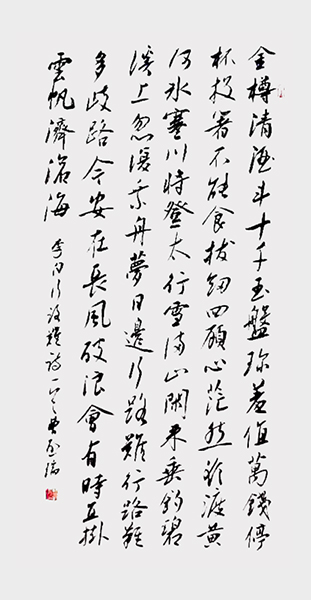 金樽清酒斗十千玉盤珍羞值萬錢停
杯投箸不能食拔劍四顧心茫然欲渡黃
河冰塞川將登太行雪滿山閑來垂釣碧
溪上忽復乘舟夢日邊行路難行路難
多歧路今安在長風破浪會有時直掛
雲帆濟滄海
李白行路難詩一首